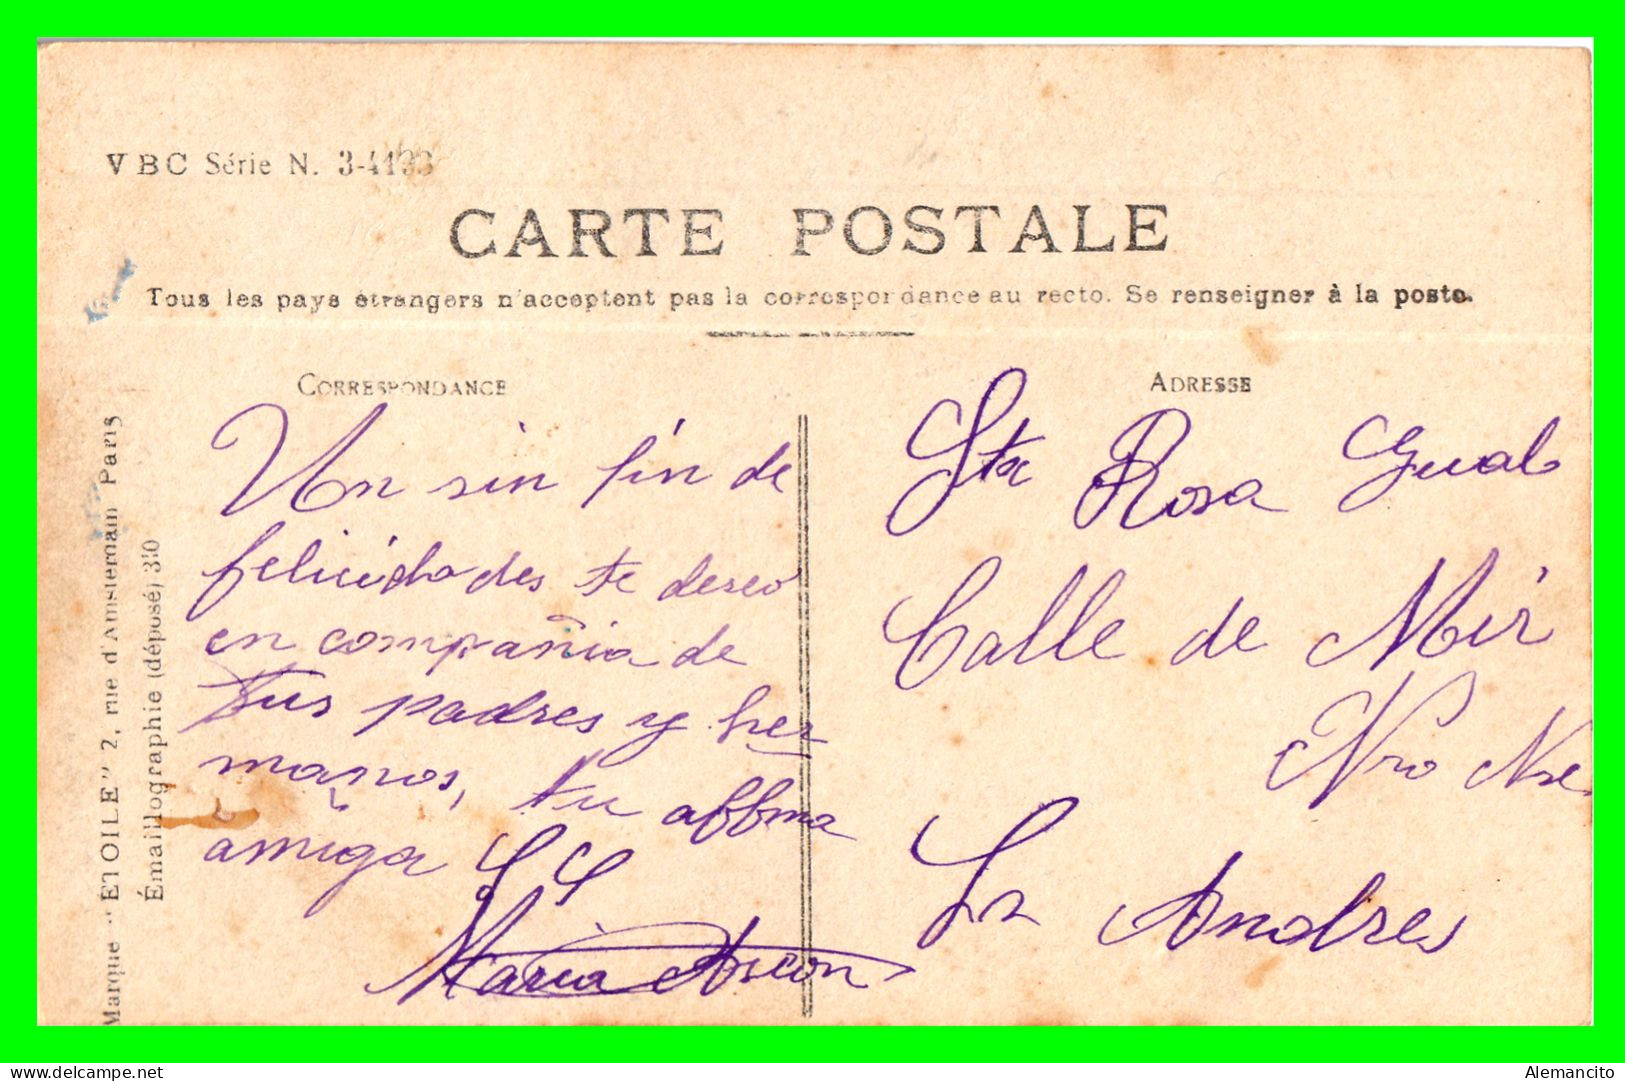 VBC Série N. 3-4193
CARTE POSTALE
Tous les pays étrangers n'acceptent pas la correspondance au recto. Se renseigner à la poste.
CORRESPONDANCE
Un sin fin de
felicidades te deseo
en compañia de
tus padres y her
manos, tu affma
amiga
Maria Ascon
ADRESSE
Sta Rosa Gual
Calle de Mir
Nro
Sn Andres
Marque "ETOILE" 2, rue d'Amsterdam Paris
Émaillographie (déposé) 330
Alemancito